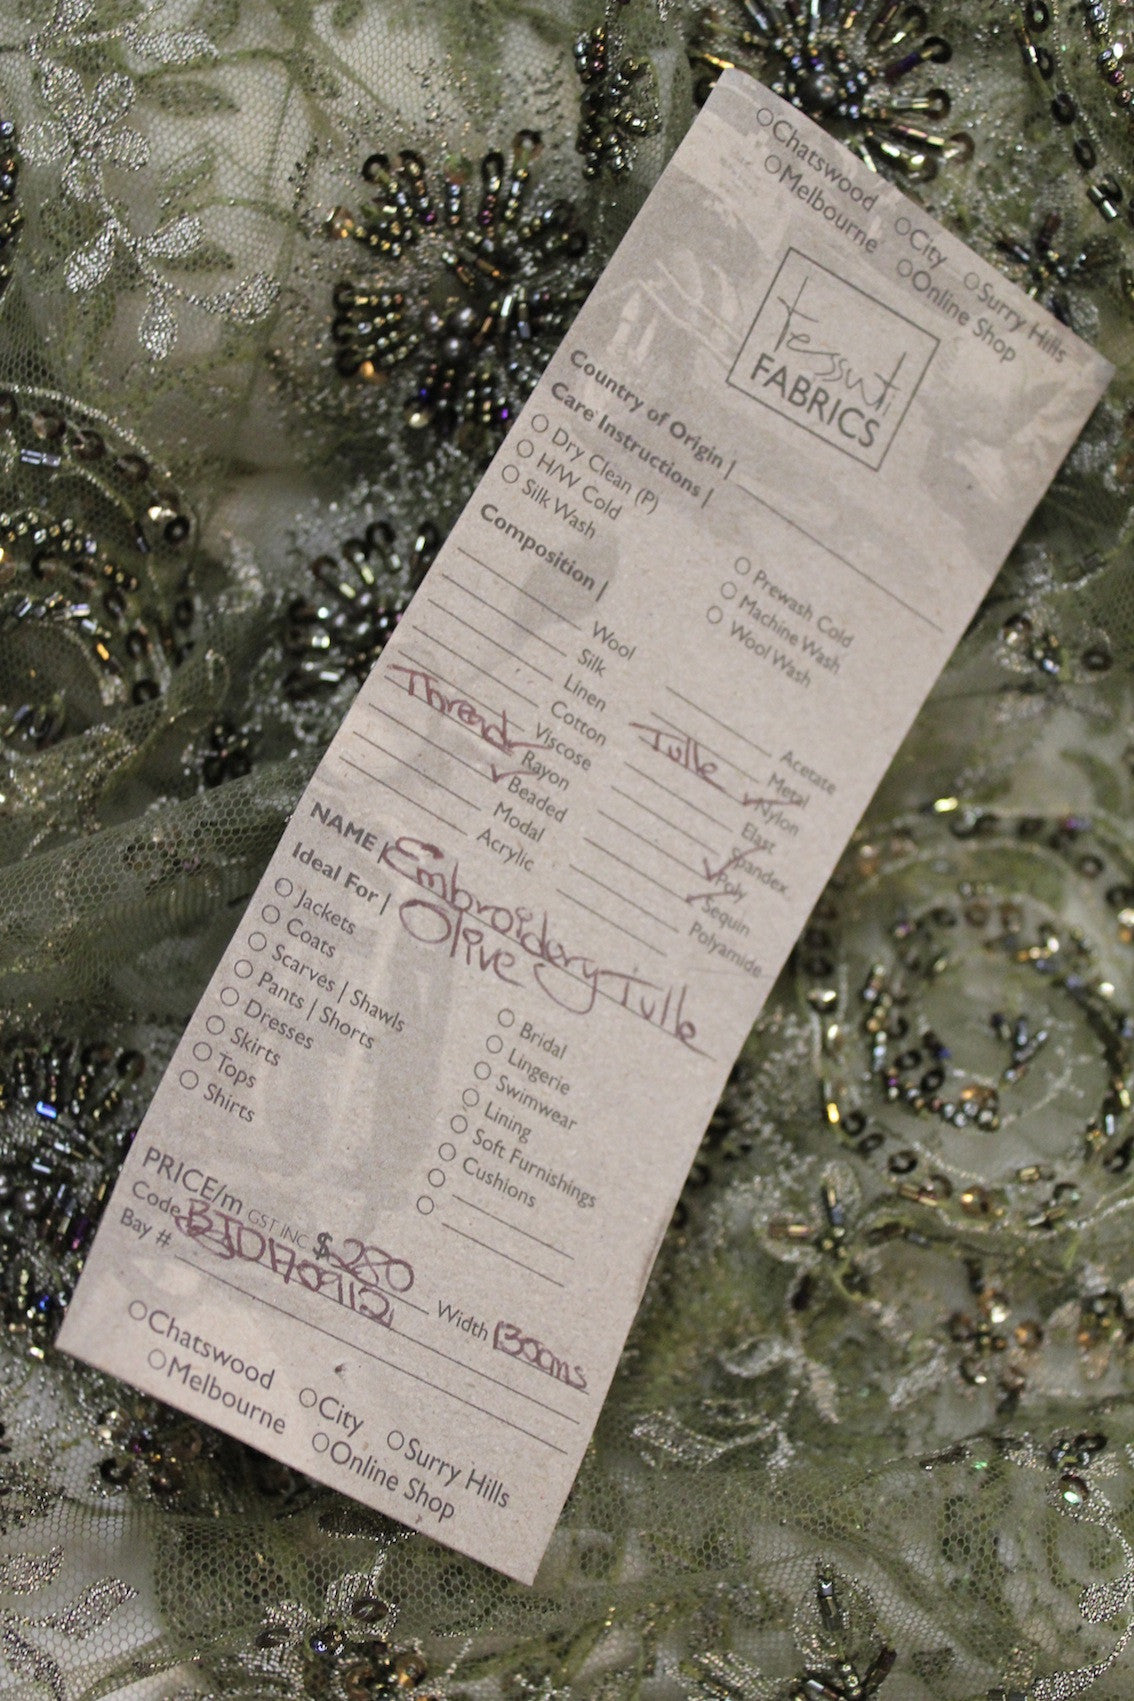 ○Chatswood ○City ○Surry Hills
○Melbourne ○Online Shop
Tessuti
FABRICS
Country of Origin |
Care Instructions |
○ Dry Clean (P) ○ Prewash Cold
○ H/W Cold ○ Machine Wash
○ Silk Wash ○ Wool Wash
Composition |
Wool Acetate
Silk Metal
Linen Tulle ✓Nylon
Cotton Elast
Viscose Spandex
Thread ✓Rayon ✓Poly
✓Beaded ✓Sequin
Modal Polyamide
Acrylic
NAME | Embroidery Tulle
Olive
Ideal For |
○ Jackets ○ Bridal
○ Coats ○ Lingerie
○ Scarves | Shawls ○ Swimwear
○ Pants | Shorts ○ Lining
○ Dresses ○ Soft Furnishings
○ Skirts ○ Cushions
○ Tops ○
○ Shirts ○
PRICE/m GST INC $280
Code Width 130cms
Bay #
○Chatswood ○City ○Surry Hills
○Melbourne ○Online Shop